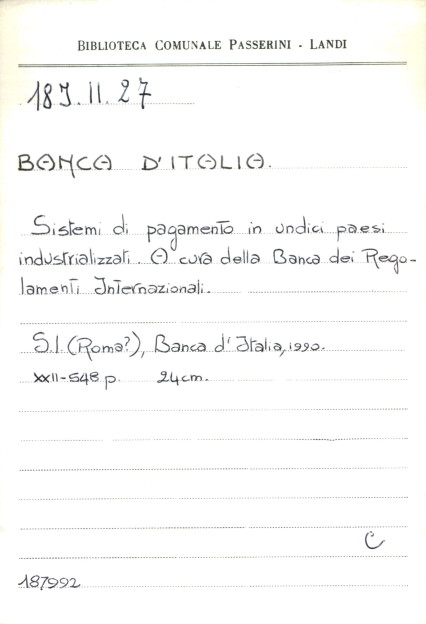 BIBLIOTECA COMUNALE PASSERINI - LANDI
18J.II.27
BANCA D'ITALIA.
Sistemi di pagamento in undici paesi
industrializzati. A cura della Banca dei Rego-
lamenti Internazionali.
S.l. (Roma?), Banca d'Italia, 1990.
XXII-548 p. 24cm.
C
187992